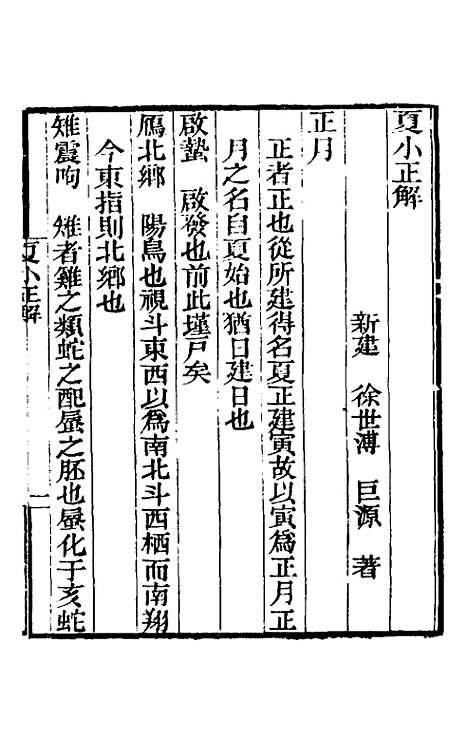 夏小正解
新建 徐世溥 巨源 著
正月
正者正也從所建得名夏正建寅故以寅爲正月正
月之名自夏始也猶日建日也
啟蟄 啟發也前此墐戸矣
鴈北鄉 陽鳥也視斗東西以爲南北斗西栖而南翔
今東指則北鄉也
雉震呴 雉者雞之類蛇之配蜃之胚也蜃化于亥蛇
夏小正解
一